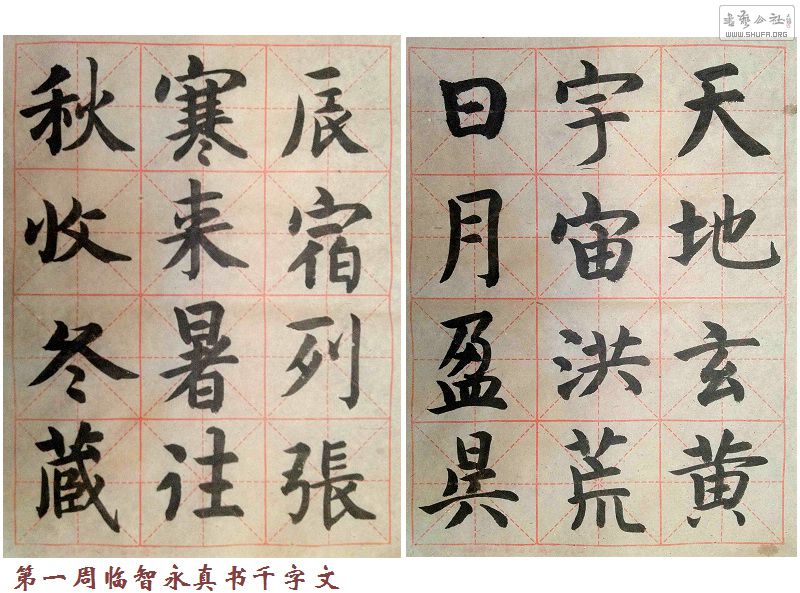 書藝公社
WWW.SHUFA.ORG
天地玄黄
宇宙洪荒
日月盈昃
辰宿列張
寒来暑往
秋收冬蔵
第一周临智永真书千字文